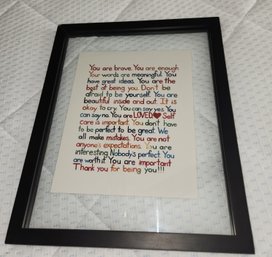 You are brave. You are enough
Your words are meaningful. You
have great ideas. You are the
best at being you. Don't be
afraid to be yourself. You are
beautiful inside and out. It is
okay to cry. You can say yes. You
can say no. You are LOVED♥ Self
care is important. You don't have
to be perfect to be great. We
all make mistakes. You are not
anyone's expectations. You are
interesting. Nobody's perfect. You
are worth it. You are important
Thank you for being you!!!